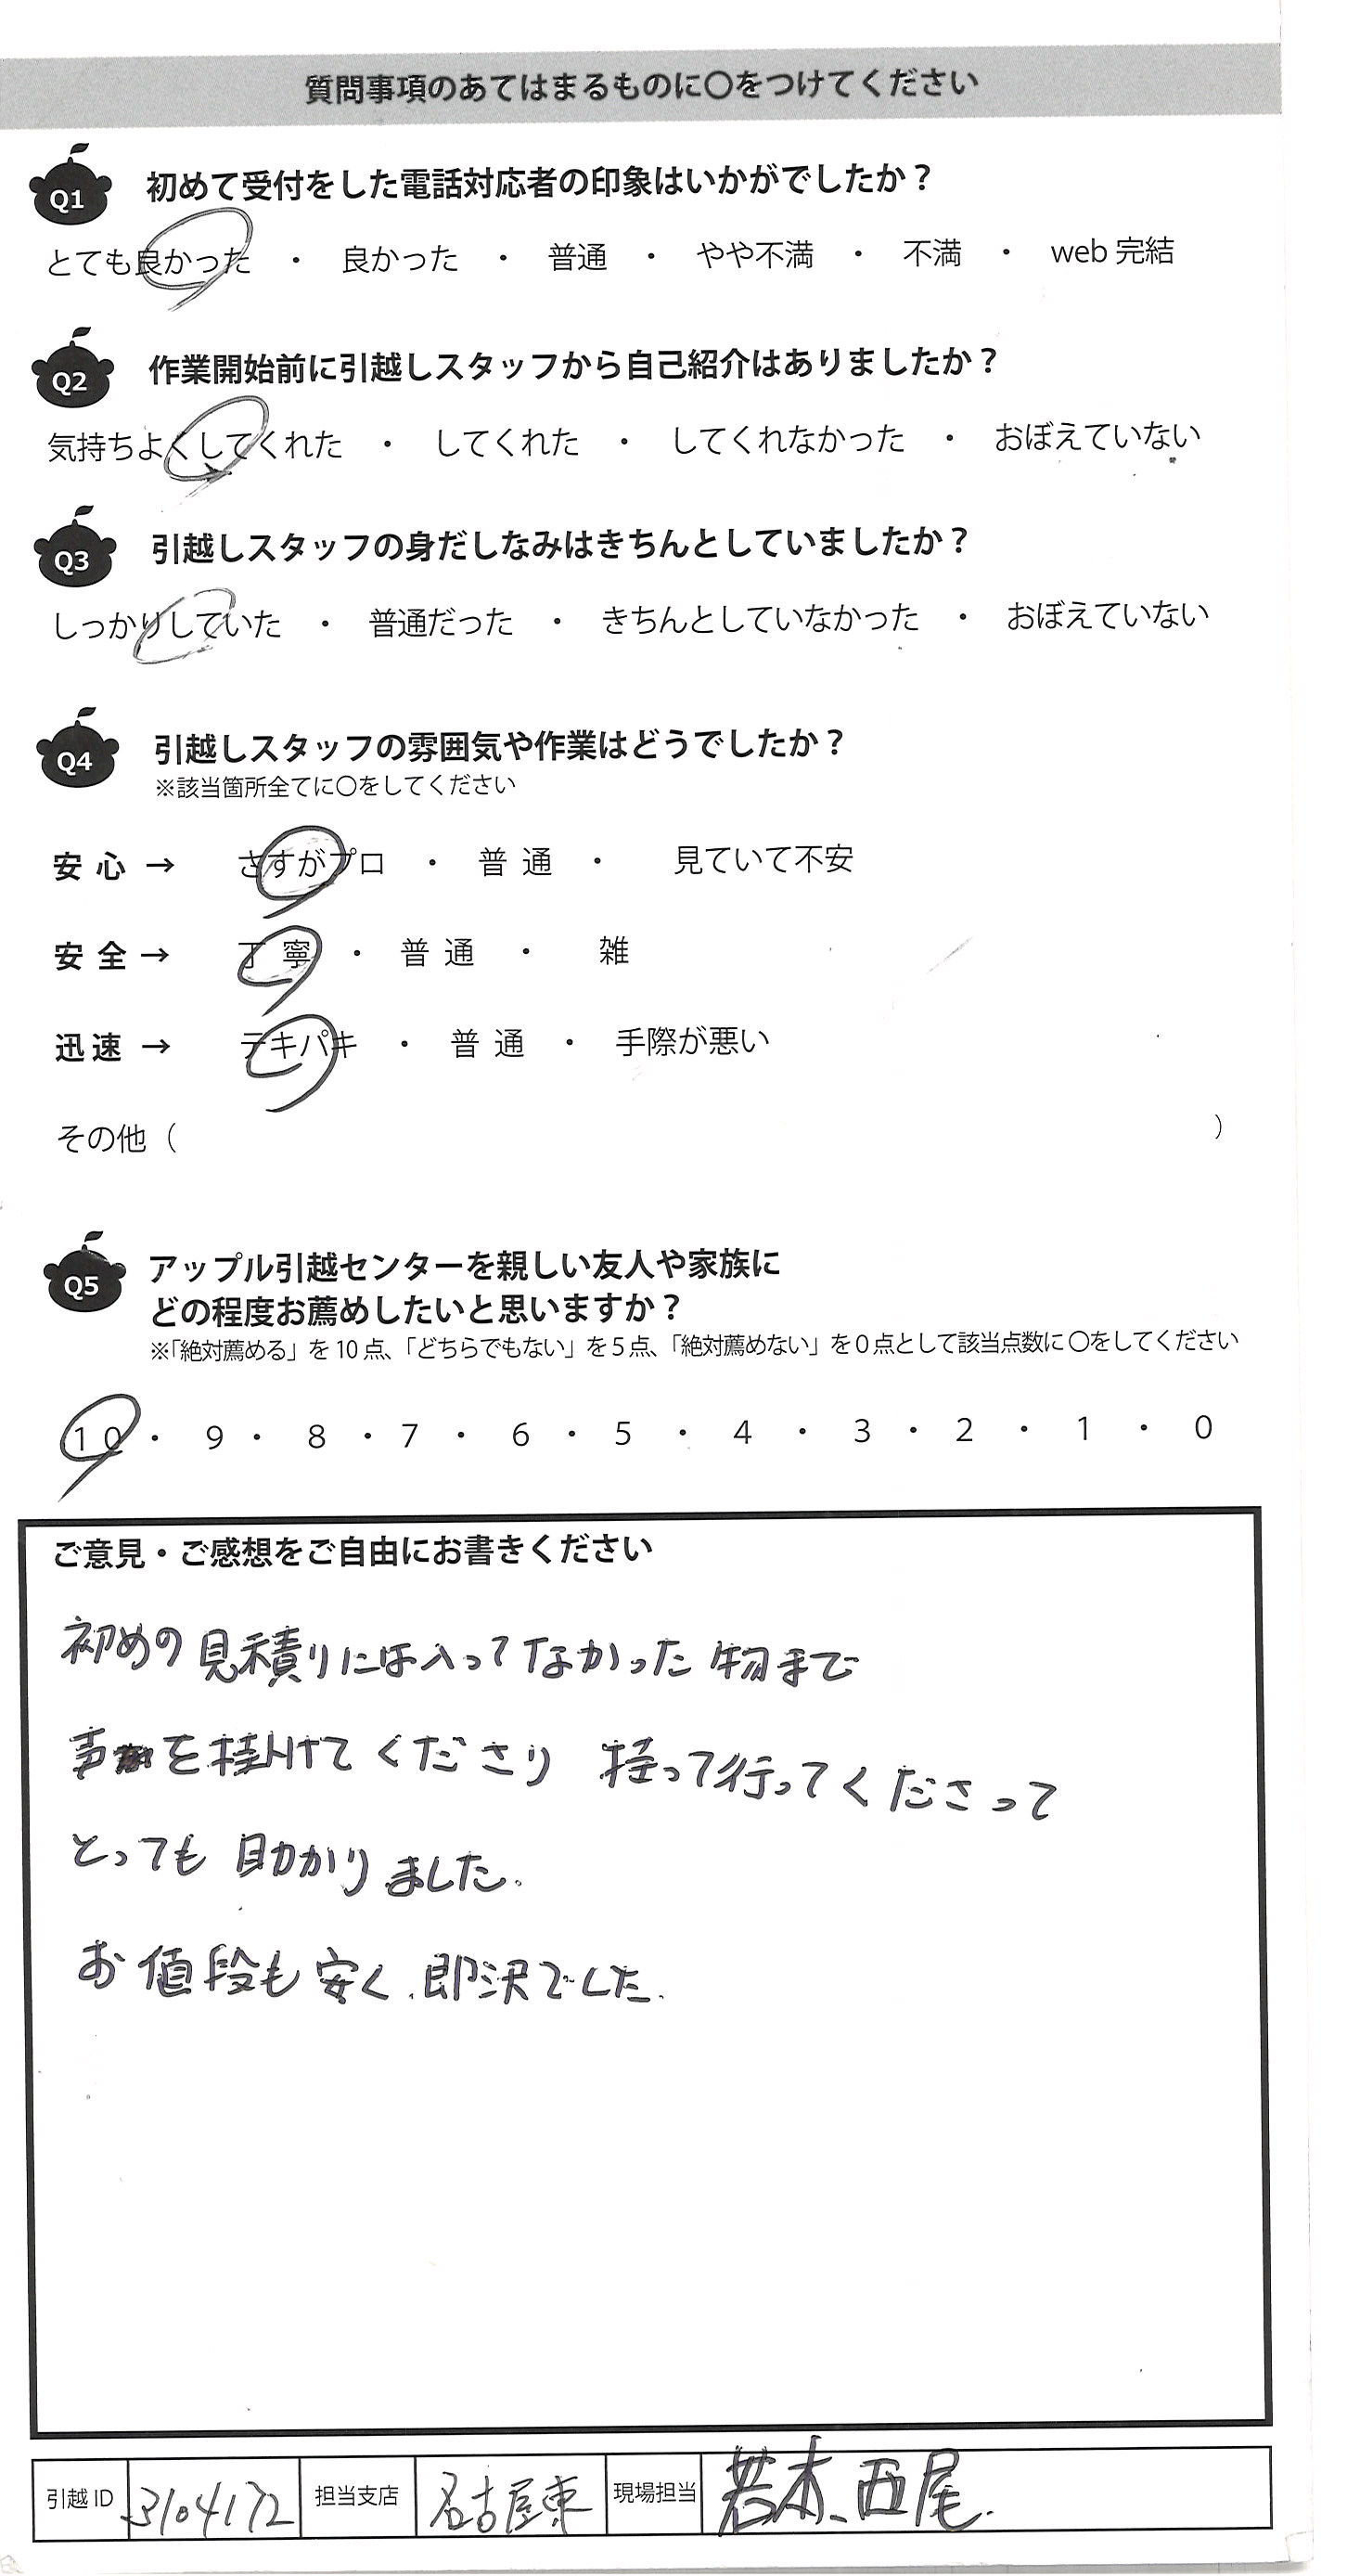 質問事項のあてはまるものに〇をつけてください
Q1 初めて受付をした電話対応者の印象はいかがでしたか？
とても良かった ・ 良かった ・ 普通 ・ やや不満 ・ 不満 ・ web 完結
Q2 作業開始前に引越しスタッフから自己紹介はありましたか？
気持ちよくしてくれた ・ してくれた ・ してくれなかった ・ おぼえていない
Q3 引越しスタッフの身だしなみはきちんとしていましたか？
しっかりしていた ・ 普通だった ・ きちんとしていなかった ・ おぼえていない
Q4 引越しスタッフの雰囲気や作業はどうでしたか？
※該当箇所全てに〇をしてください
安心 → さすがプロ ・ 普通 ・ 見ていて不安
安全 → 丁寧 ・ 普通 ・ 雑
迅速 → テキパキ ・ 普通 ・ 手際が悪い
その他（ ）
Q5 アップル引越センターを親しい友人や家族に
どの程度お薦めしたいと思いますか？
※「絶対薦める」を10点、「どちらでもない」を5点、「絶対薦めない」を0点として該当点数に〇をしてください
10 ・ 9 ・ 8 ・ 7 ・ 6 ・ 5 ・ 4 ・ 3 ・ 2 ・ 1 ・ 0
ご意見・ご感想をご自由にお書きください
初めの見積りには入ってなかった物まで
声を掛けてくださり 持って行ってくださって
とっても助かりました.
お値段も安く、即決でした.
引越ID 3104172 担当支店 名古屋東 現場担当 若木、西尾.